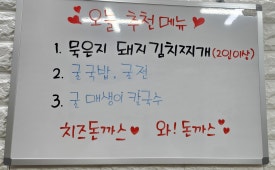 오늘 추천메뉴
1. 묵은지 돼지 김치찌개(2인이상)
2. 굴국밥, 굴전
3. 굴 매생이 칼국수
치즈돈까스 와! 돈까스